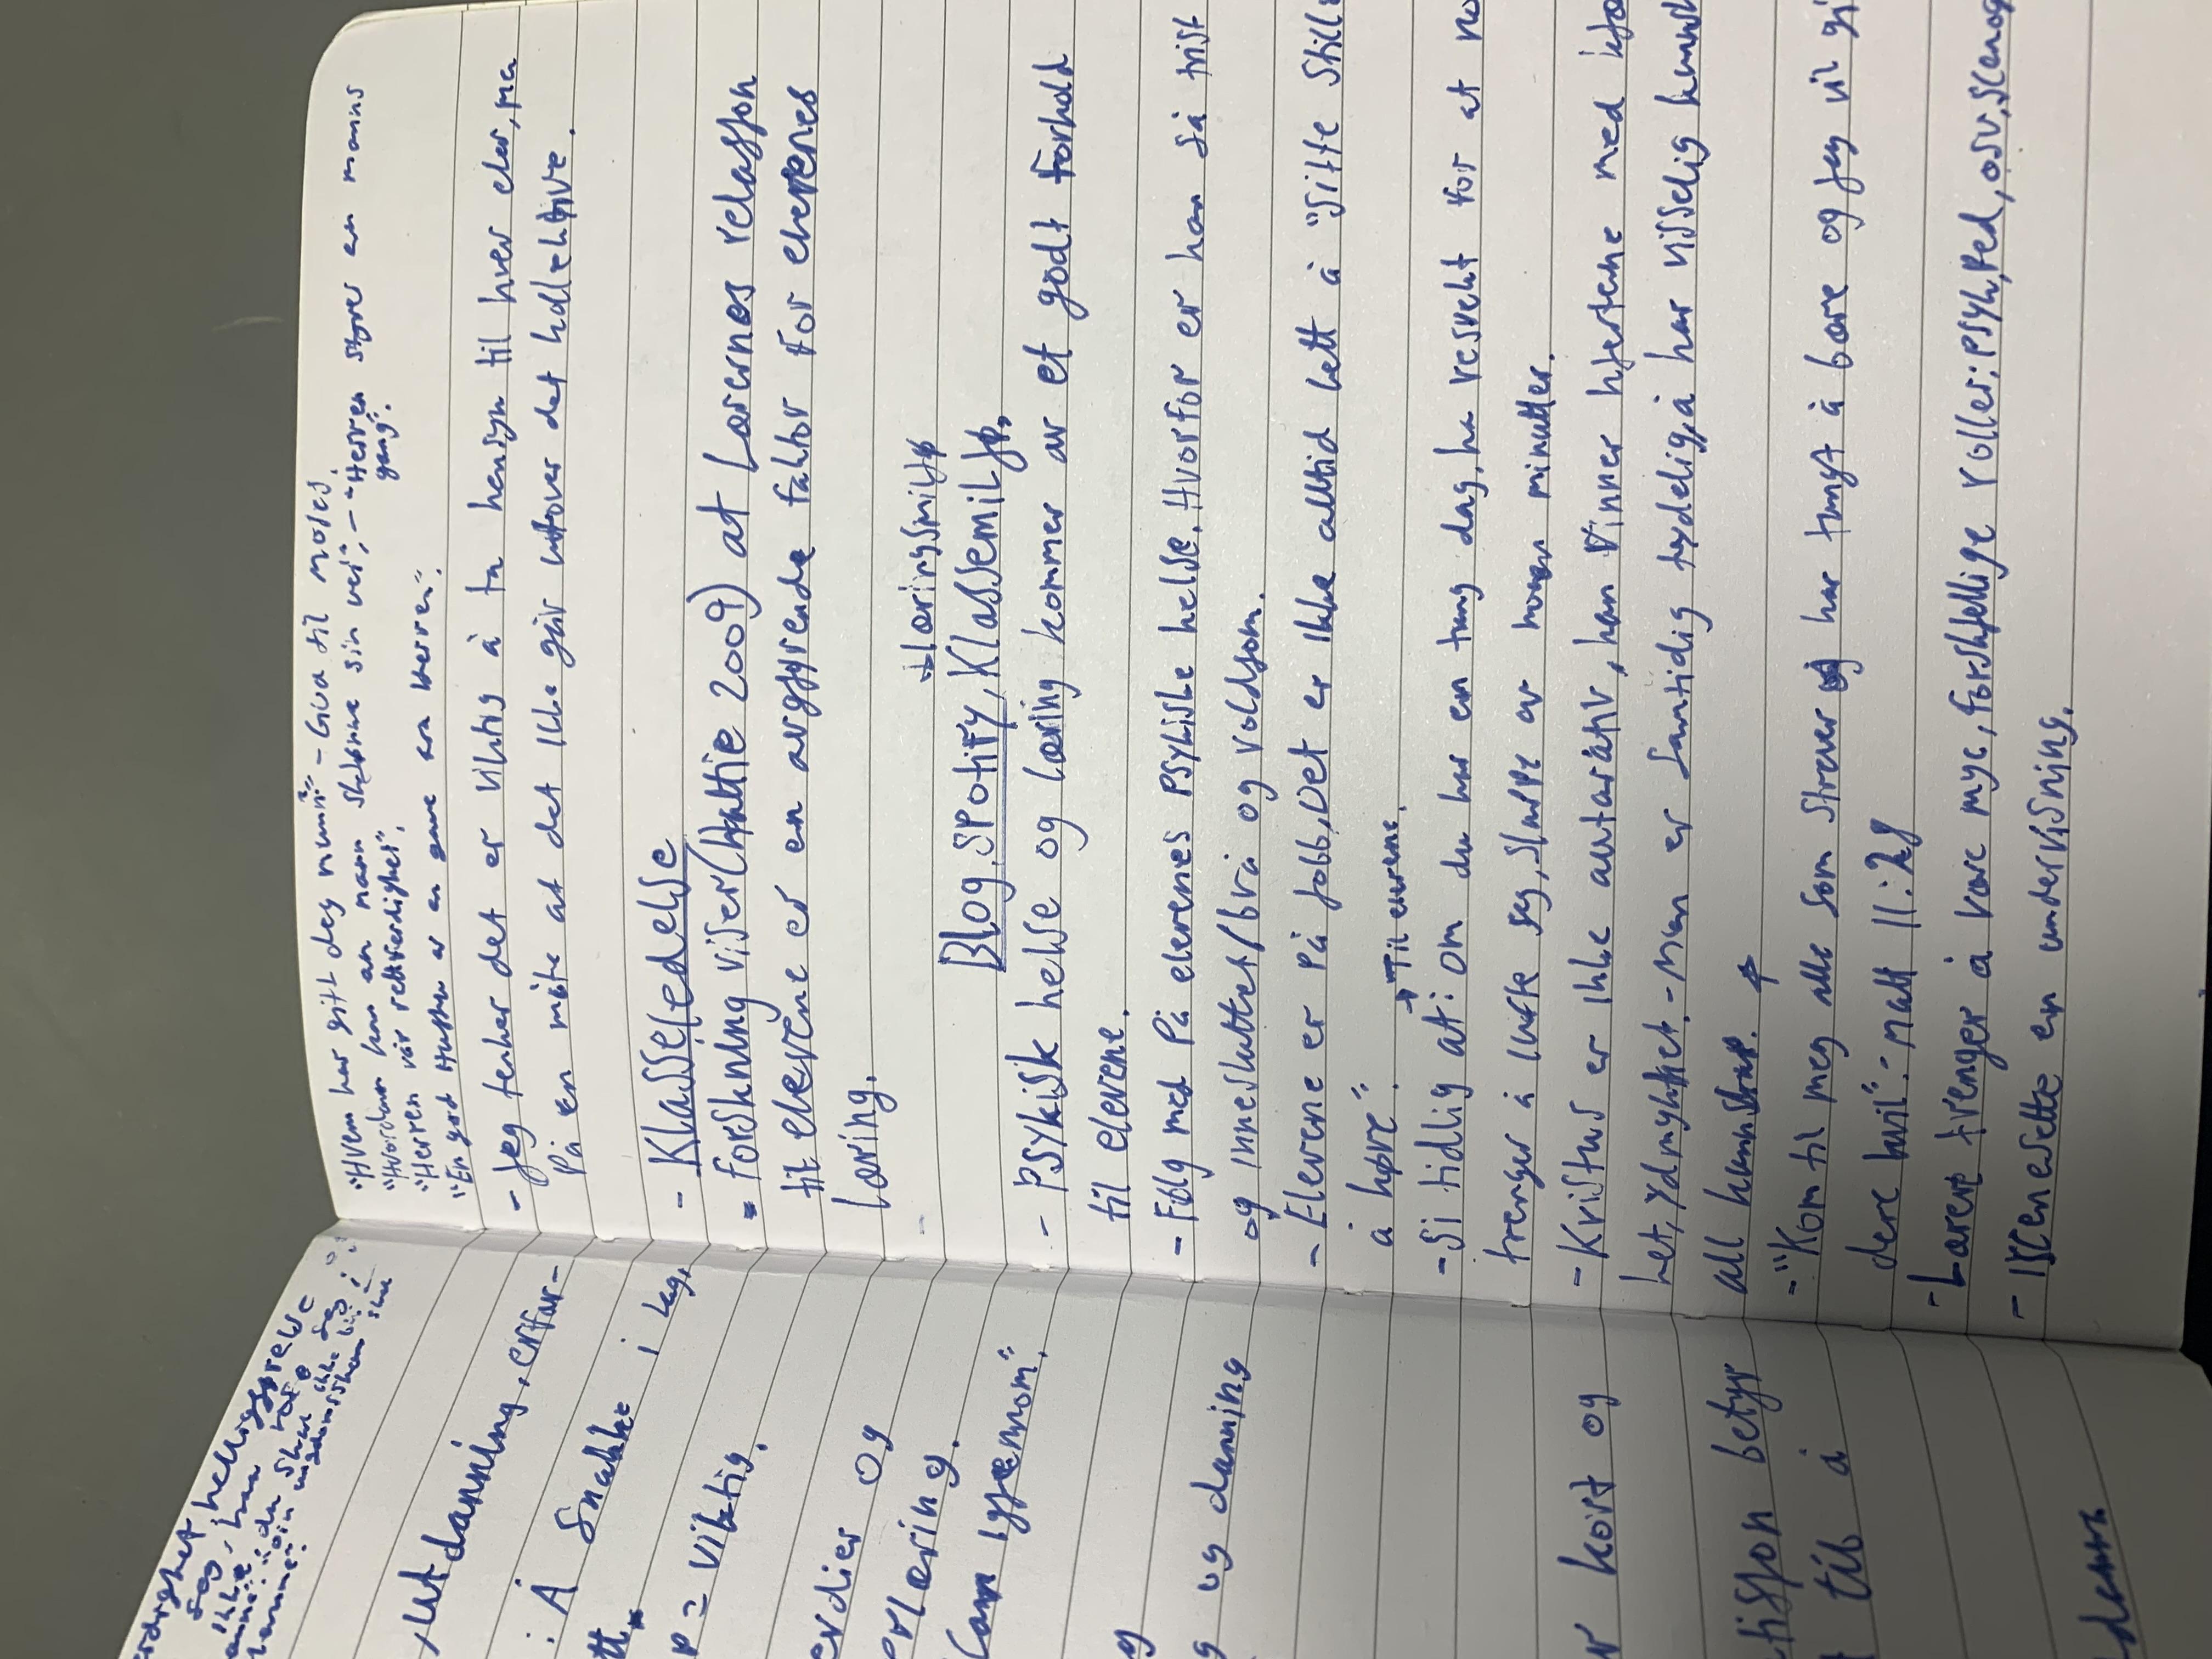 erdighet, helliggjørelse
seg, han
ikke
"du skal ikke
mannen
, utdanning, erfar-
: Å snakke i lag,
tt.
= viktig.
erdier og
erlæring.
igjennom".
g
g og danning
r kort og
betyr
t til å
"Hvem har gitt deg munn" - Gud til moses.
"Hvordan kan en mann skjønne sin vei", - "Herren styrer en manns
gang".
"Herren vår rettferdighet",
"En god Hustru er en gave fra Herren".
- Jeg tenker det er viktig å ta hensyn til hver elev, men
på en måte at det ikke går utover det kollektive.
- Klasseledelse
= Forskning viser (Hattie 2009) at Lærernes relasjon
til elevene er en avgjørende faktor for elevenes
læring.
Læringsmiljø
Blog, Spotify, Klassemiljø,
- Psykisk helse og læring kommer av et godt forhold
til elevene.
- Følg med på elevenes psykiske helse. Hvorfor er han så trist
og innesluttet/bråi og voldsom.
- Elevene er på jobb, Det er ikke alltid lett å "sitte stille
å høre".
→ Til elevene.
- Si tidlig at: om du har en tung dag, ha respekt for at no
trenger å lufte seg, slappe av noen minutter.
- Kristus er ikke autoritativ, han vinner hjertene med
het, ydmykhet. - Men er samtidig tydelig, å har visselig kunnsk
all kunnskap.
- "Kom til meg alle som strever og har tungt å bære og jeg vil gi
dere hvil": Matt 11:28
- Lærer trenger å være mye, forskjellige roller: Psyk, Ped, osv, scenog
- Iscenesette en undervisning.